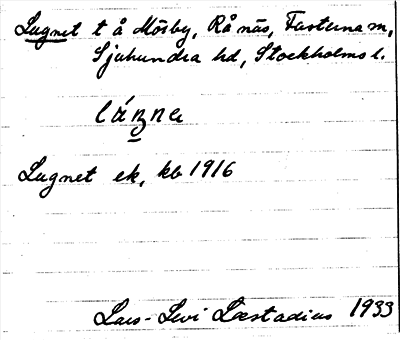 Lugnet t å Mösby, Rånäs, Fasterna sn,
Sjuhundra hd, Stockholms l.
Lugnet ek, kb 1916
Lars-Levi Læstadius 1933